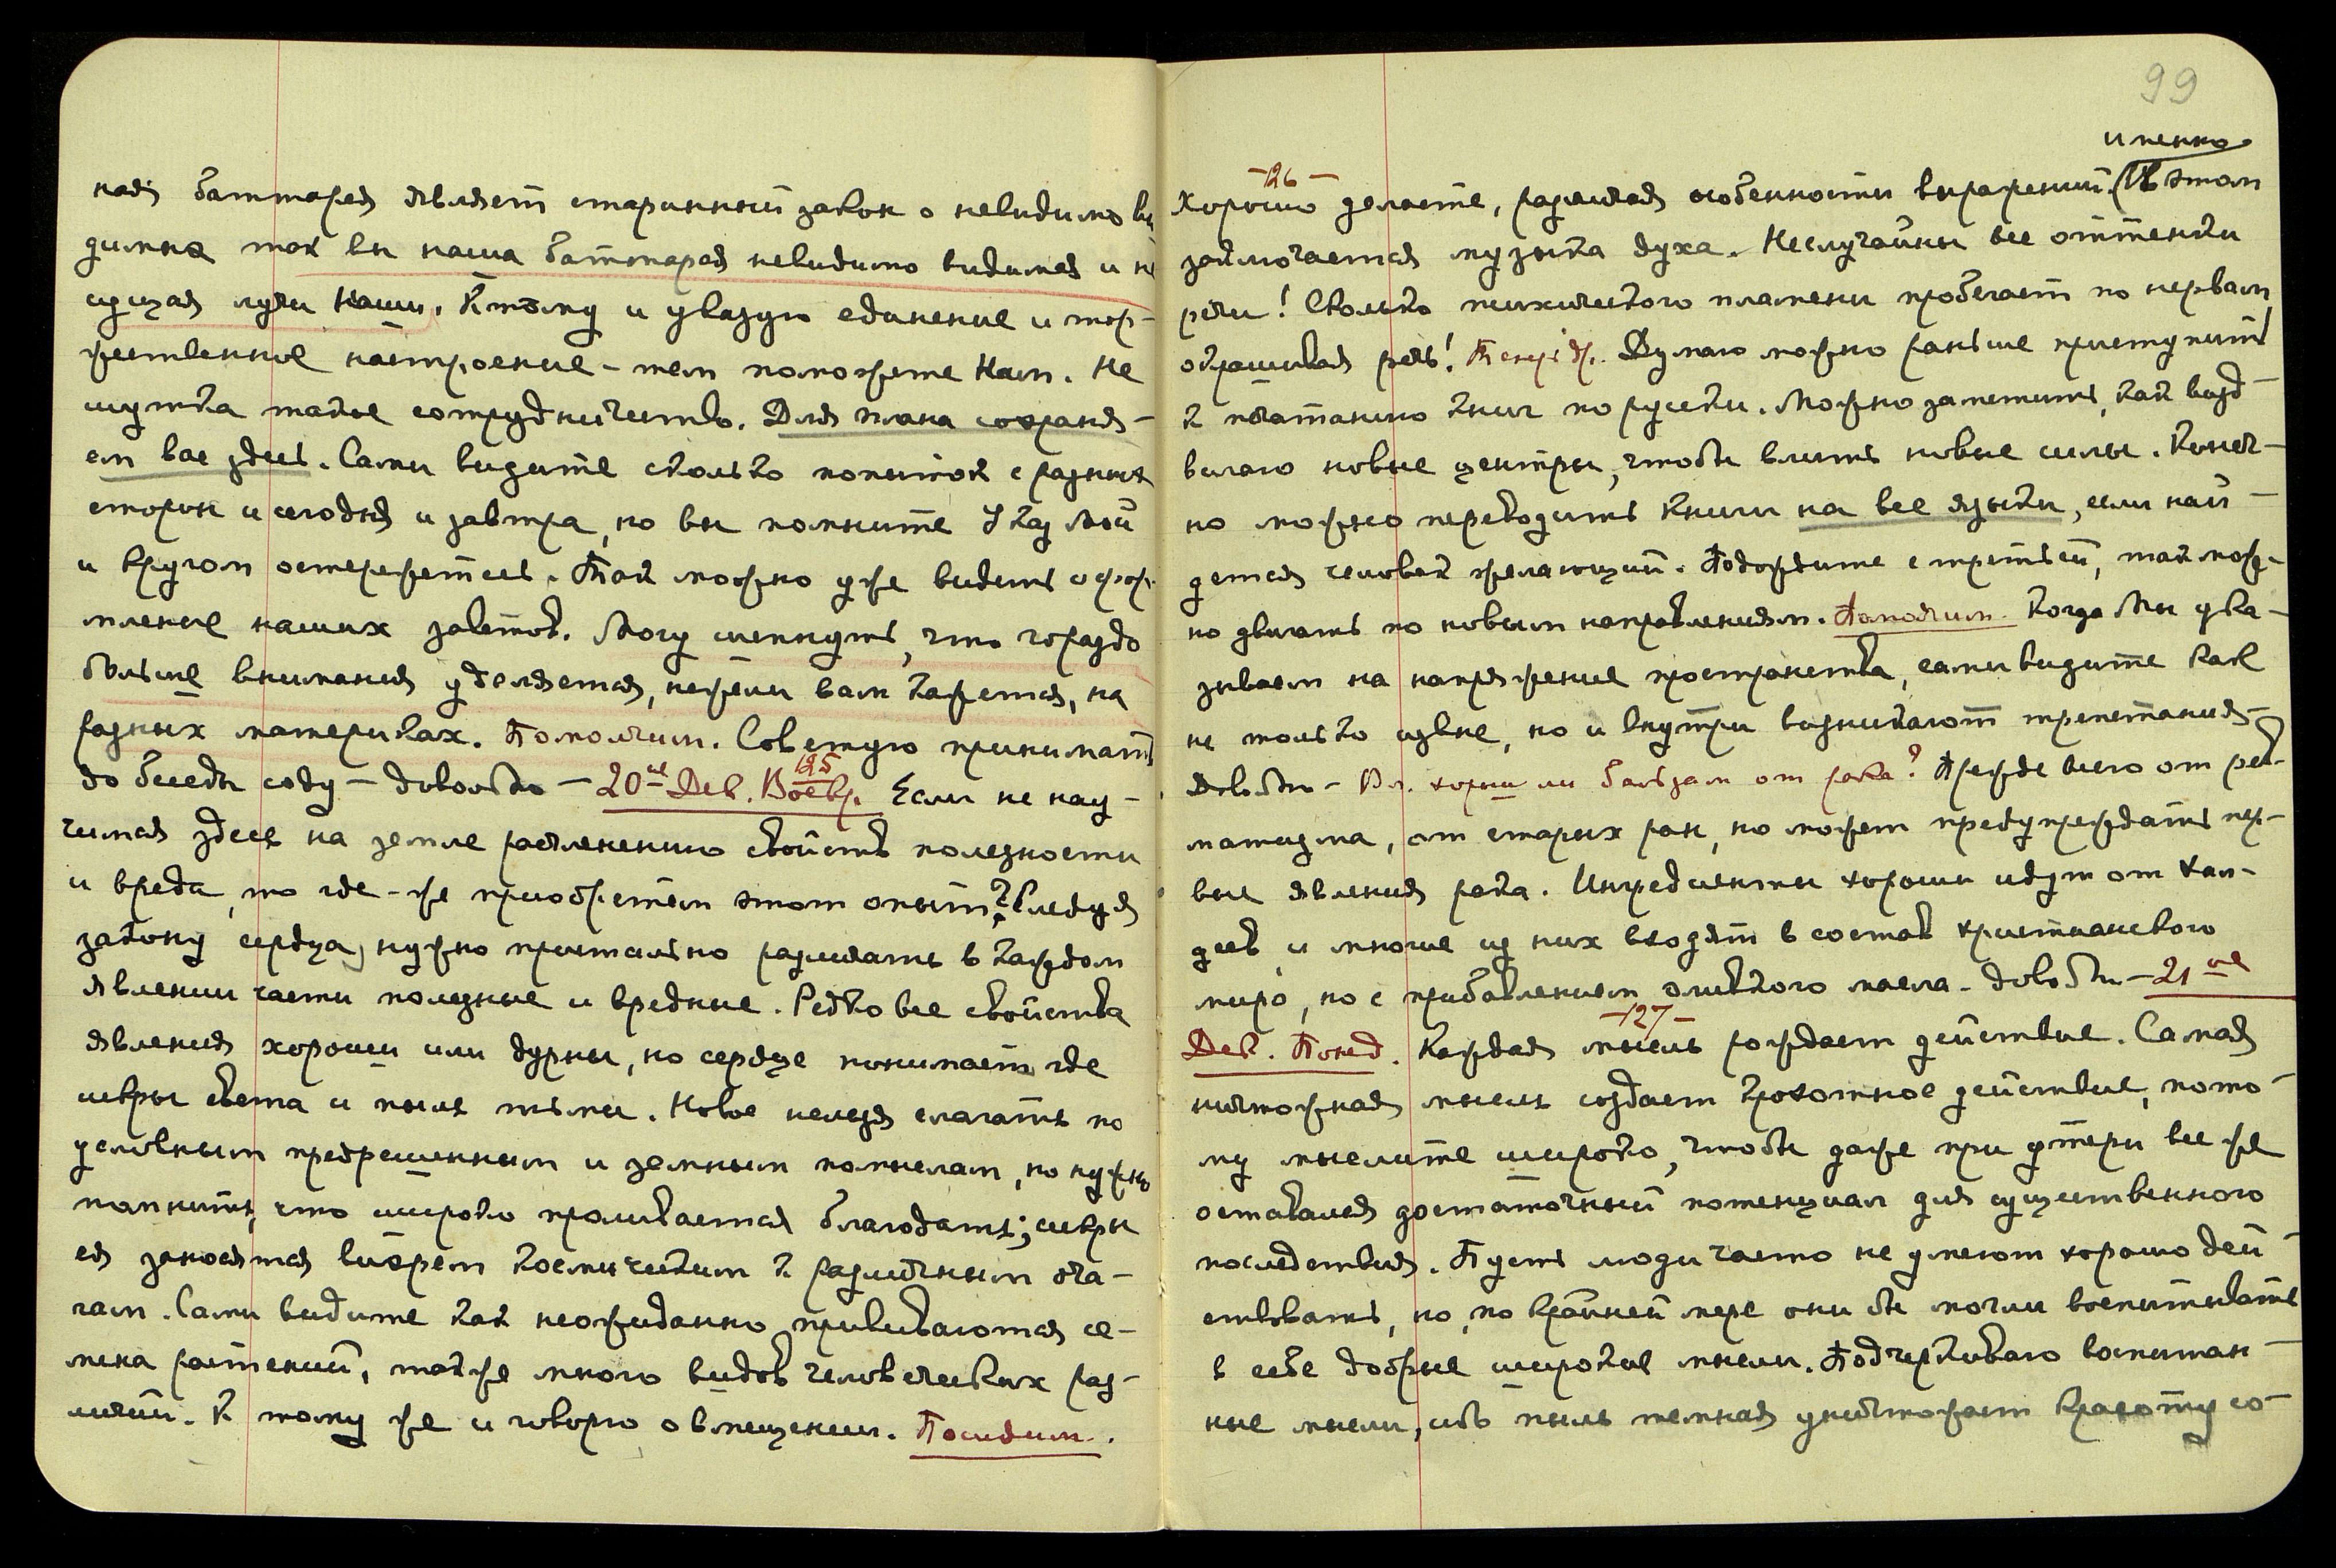 ная батарея являет старинный закон о невидимо ви
димых так вы наша баттарея невидимо видимая и не
сущая лучи Наши. К тому и указую единение и тор-
жественное настроение – тем поможете Нам. Не
шутка такое сотрудничество. Для плана сохраня-
ем вас здесь. Сами видите сколько попыток с разных
сторон и сегодня и завтра, но вы помните Указ Мой
и кругом остерегетесь. Так можно уже видеть офор-
мление наших заветов. Могу шепнуть, что гораздо
больше внимания уделяется, нежели вам кажется, на
разных материках. Помолчим. Советую принимать
до беседы соду – довольно – 20ое Дек. Воскр. 125 Если не нау-
чимся здесь на земле расчленению свойств полезности
и вреда, то где-же приобретем этот опыт? Следуя
закону сердца, нужно пристально различать в каждом
явлении части полезные и вредные. Редко все свойства
явления хороши или дурны, но сердце понимает где
искры света и пыль тьмы. Новое нельзя слагать по
условным предрешенным и земным помыслам, но нужно
помнить, что широко проливается благодать; искры
ея заносятся вихрем космическим к различным оча-
гам. Сами видите как неожиданно прививаются се-
мена растений, также много видов человеческих раз-
личий. К тому же и говорю о вмещении. Посидим.
99
именно
–126–
Хорошо делаете, различая особенности выражений. (В этом
заключается музыка духа. Неслучайны все оттенки
речи! Сколько психического пламени пробегает по нервам
окрашивая речь! Думаю можно раньше приступить
к печатанию книг по русски. Можно заметить, как воз-
вигаю новые центры, чтобы влить новые силы. Конеч-
но можно переводить книги на все языки, если най-
дется человек желающий. Подождите с третьей, так мож-
но двигать по новым направлениям. Помолчим. Когда Мы ука-
зываем на напряжение пространства, сами видите как
не только извне, но и внутри возникают трепетания –
Довольно – Вл. хорош ли бальзам от рака? Прежде всего от рев-
матизма, от старых ран, но может предупреждать пер-
вые явления рака. Ингредиенты хороши идут от хал-
деев, и многие из них входят в состав христианского
миро, но с прибавлением оливкого масла – довольно – 21ое
Дек. Понед. –127– Каждая мысль рождает действие. Самая
ничтожная мысль создает крохотное действие, пото-
му мыслите широко, чтобы даже при утери все же
оставался достаточный потенциал для существенного
последствия. Пусть люди часто не умеют хорошо дей-
ствовать, но, по крайней мере они бы могли воспитывать
в себе добрые широкие мысли. Подчеркиваю воспитан-
ные мысли, ибо пыль темная уничтожает красоту со-